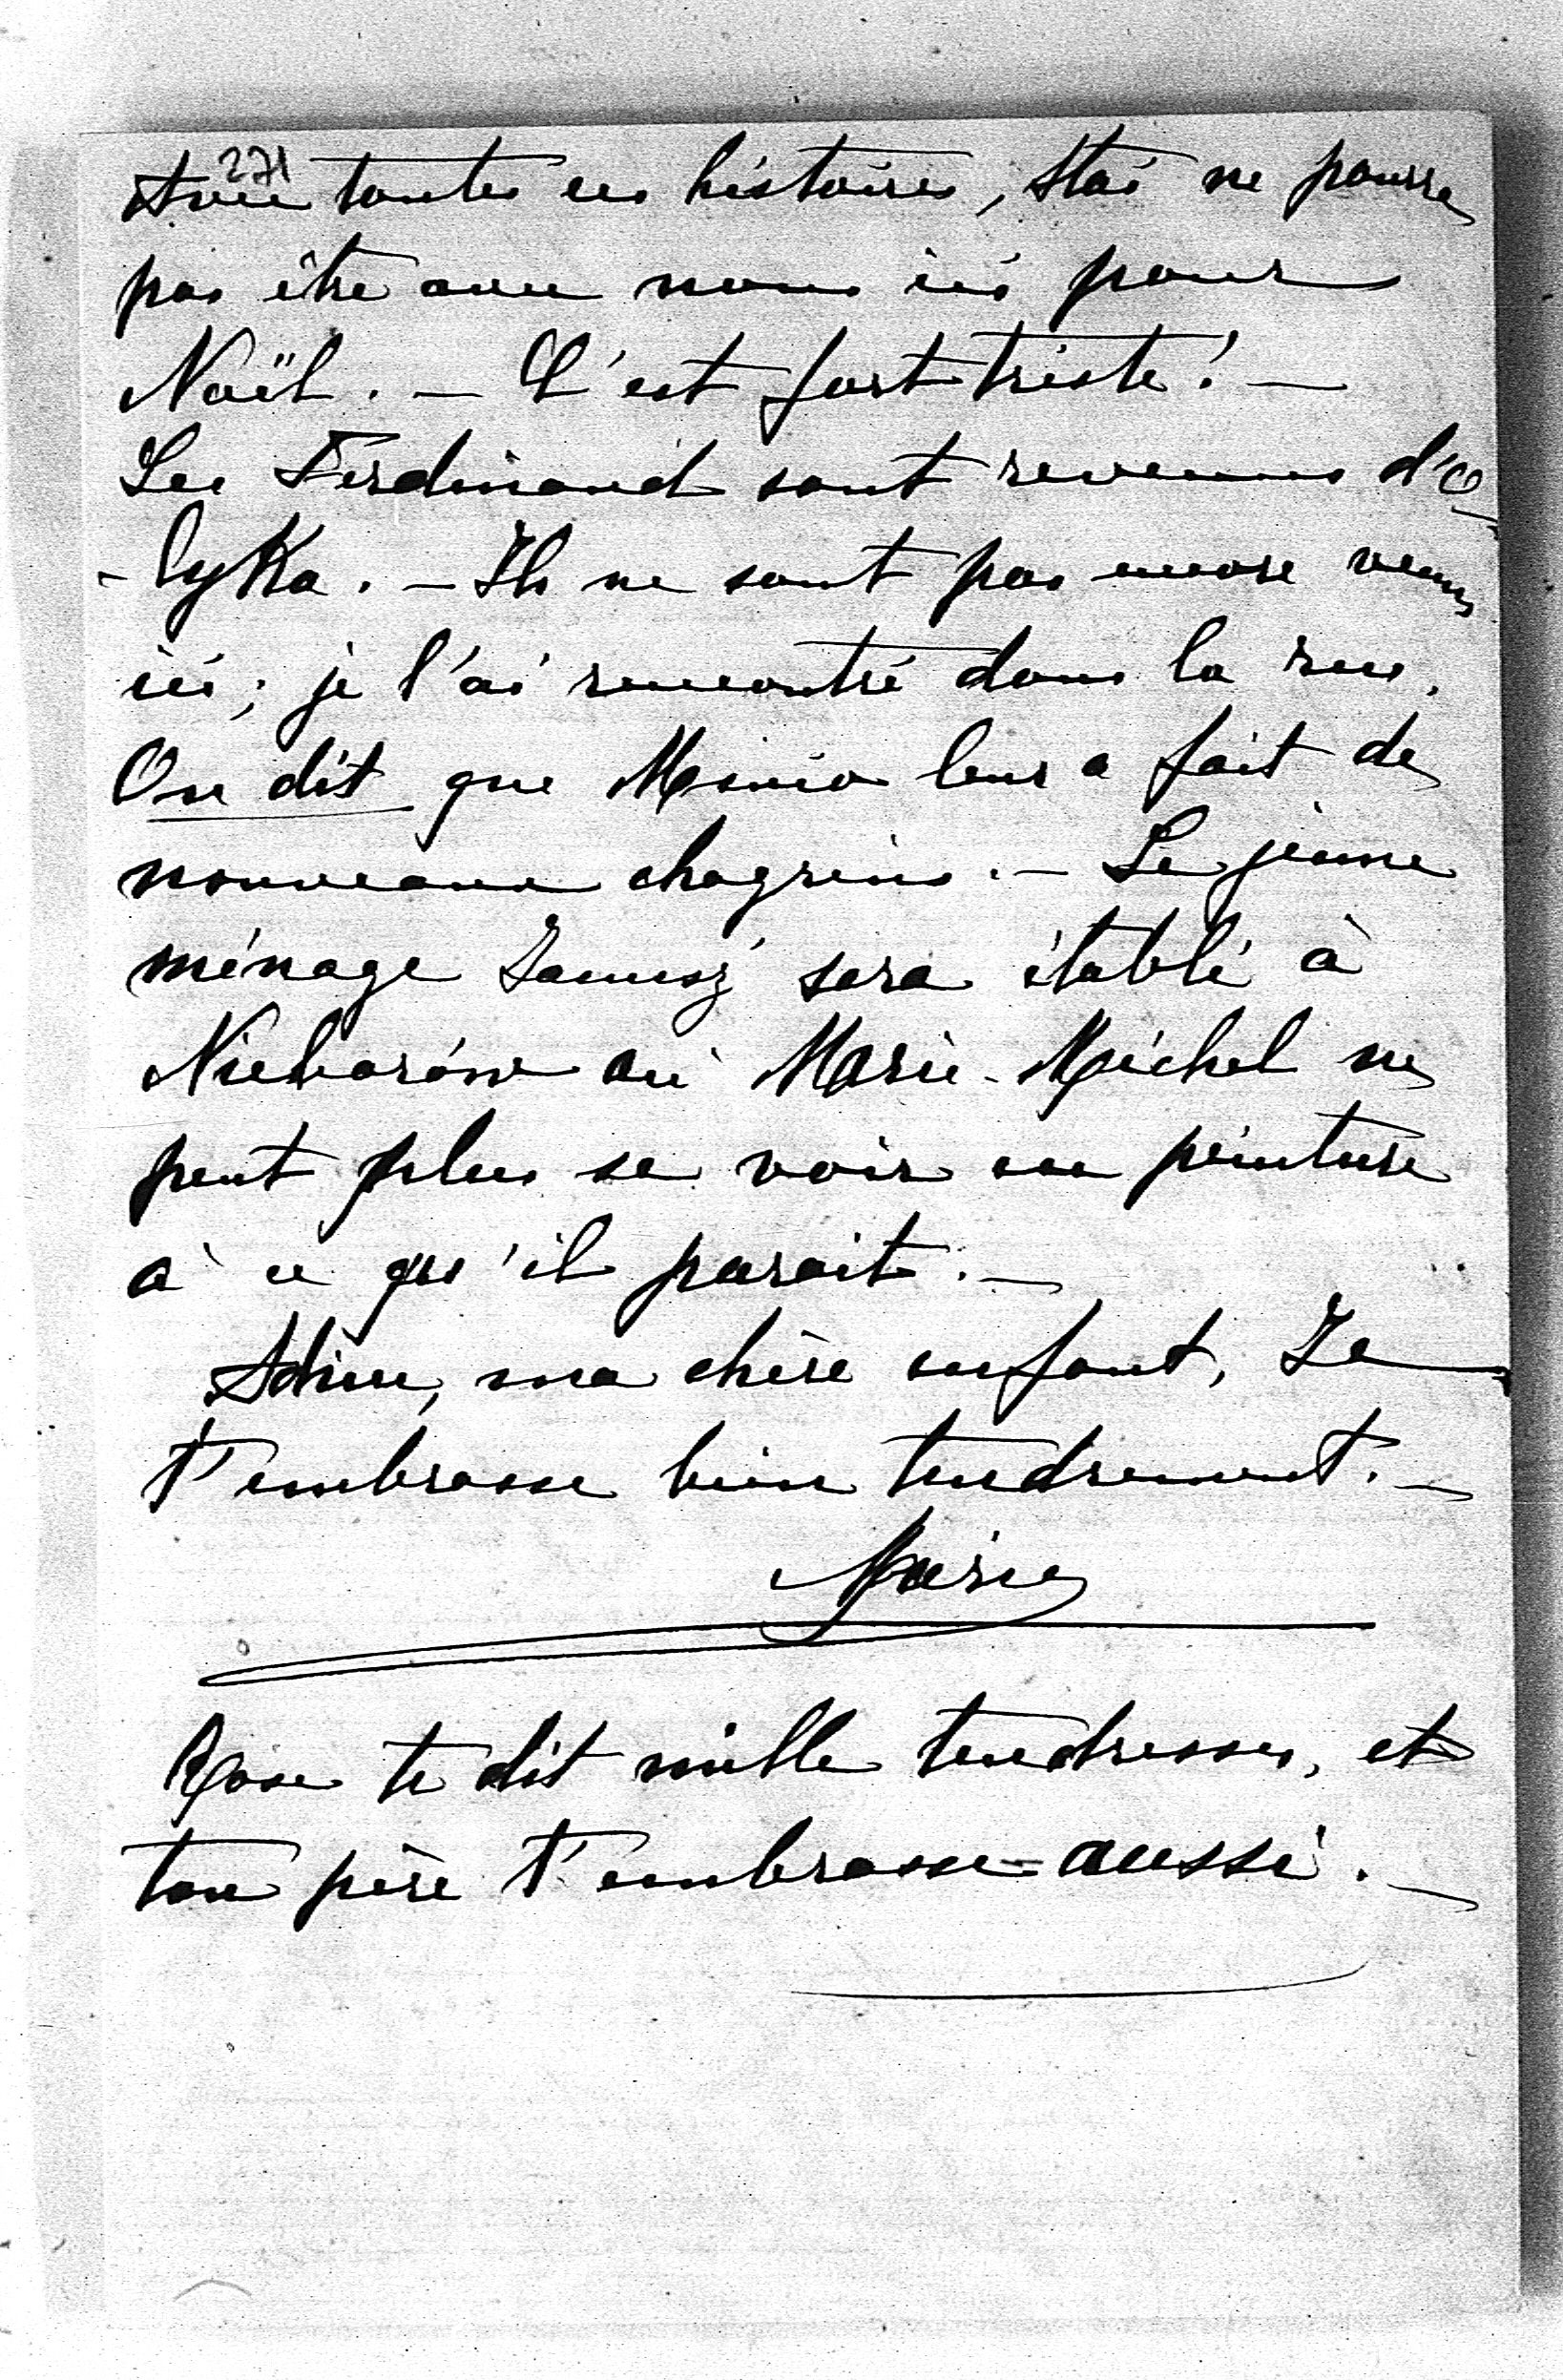 271
Avec toutes ces histoires, Staś ne pourra
pas être avec nous ici pour
Noël. — C'est fort triste! —
Les Ferdinand sont revenus d'O-
-lyka. — Ils ne sont pas encore venus
ici; je l'ai rencontré dans la rue.
On dit que Maria leur a fait de
nouveaux chagrins. — Le jeune
ménage Janusz sera établi à
Nieborów où Marie-Michel ne
peut plus se voir en peinture
à ce qu'il parait. —
Adieu, ma chère enfant, Je
t'embrasse bien tendrement. —
Marie
Rose te dit mille tendresses, et
ton père t'embrasse aussi. —